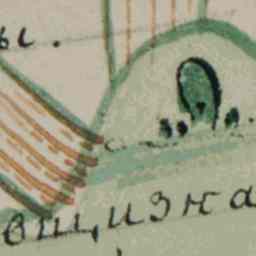 ы.
вщизна